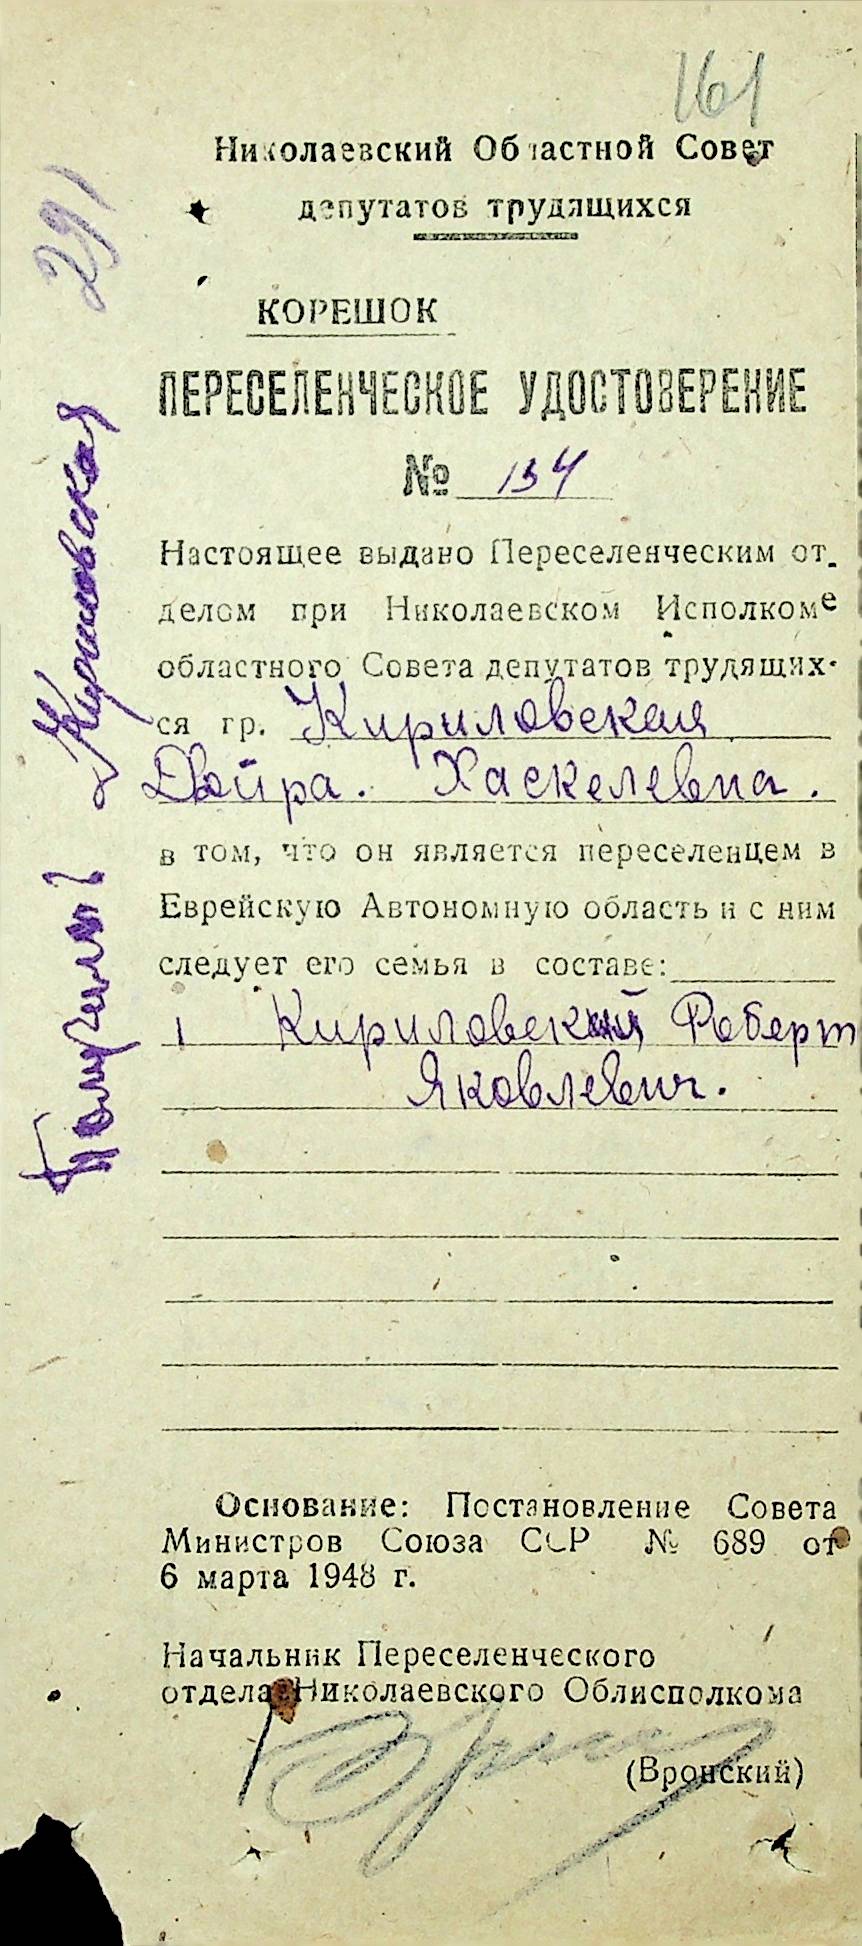 161
291
Николаевский Областной Совет
депутатов трудящихся
КОРЕШОК
ПЕРЕСЕЛЕНЧЕСКОЕ УДОСТОВЕРЕНИЕ
№ 134
Настоящее выдано Переселенческим от.
делом при Николаевском Исполкоме
областного Совета депутатов трудящих-
ся гр. Кириловская
Двойра. Хаскелевна.
в том, что он является переселенцем в
Еврейскую Автономную область и с ним
следует его семья в составе:
1 Кириловский Роберт
Яковлевич.
Получил Кириловская
Основание: Постановление Совета
Министров Союза ССР № 689 от
6 марта 1948 г.
Начальник Переселенческого
отдела Николаевского Облисполкома
(Вронский)